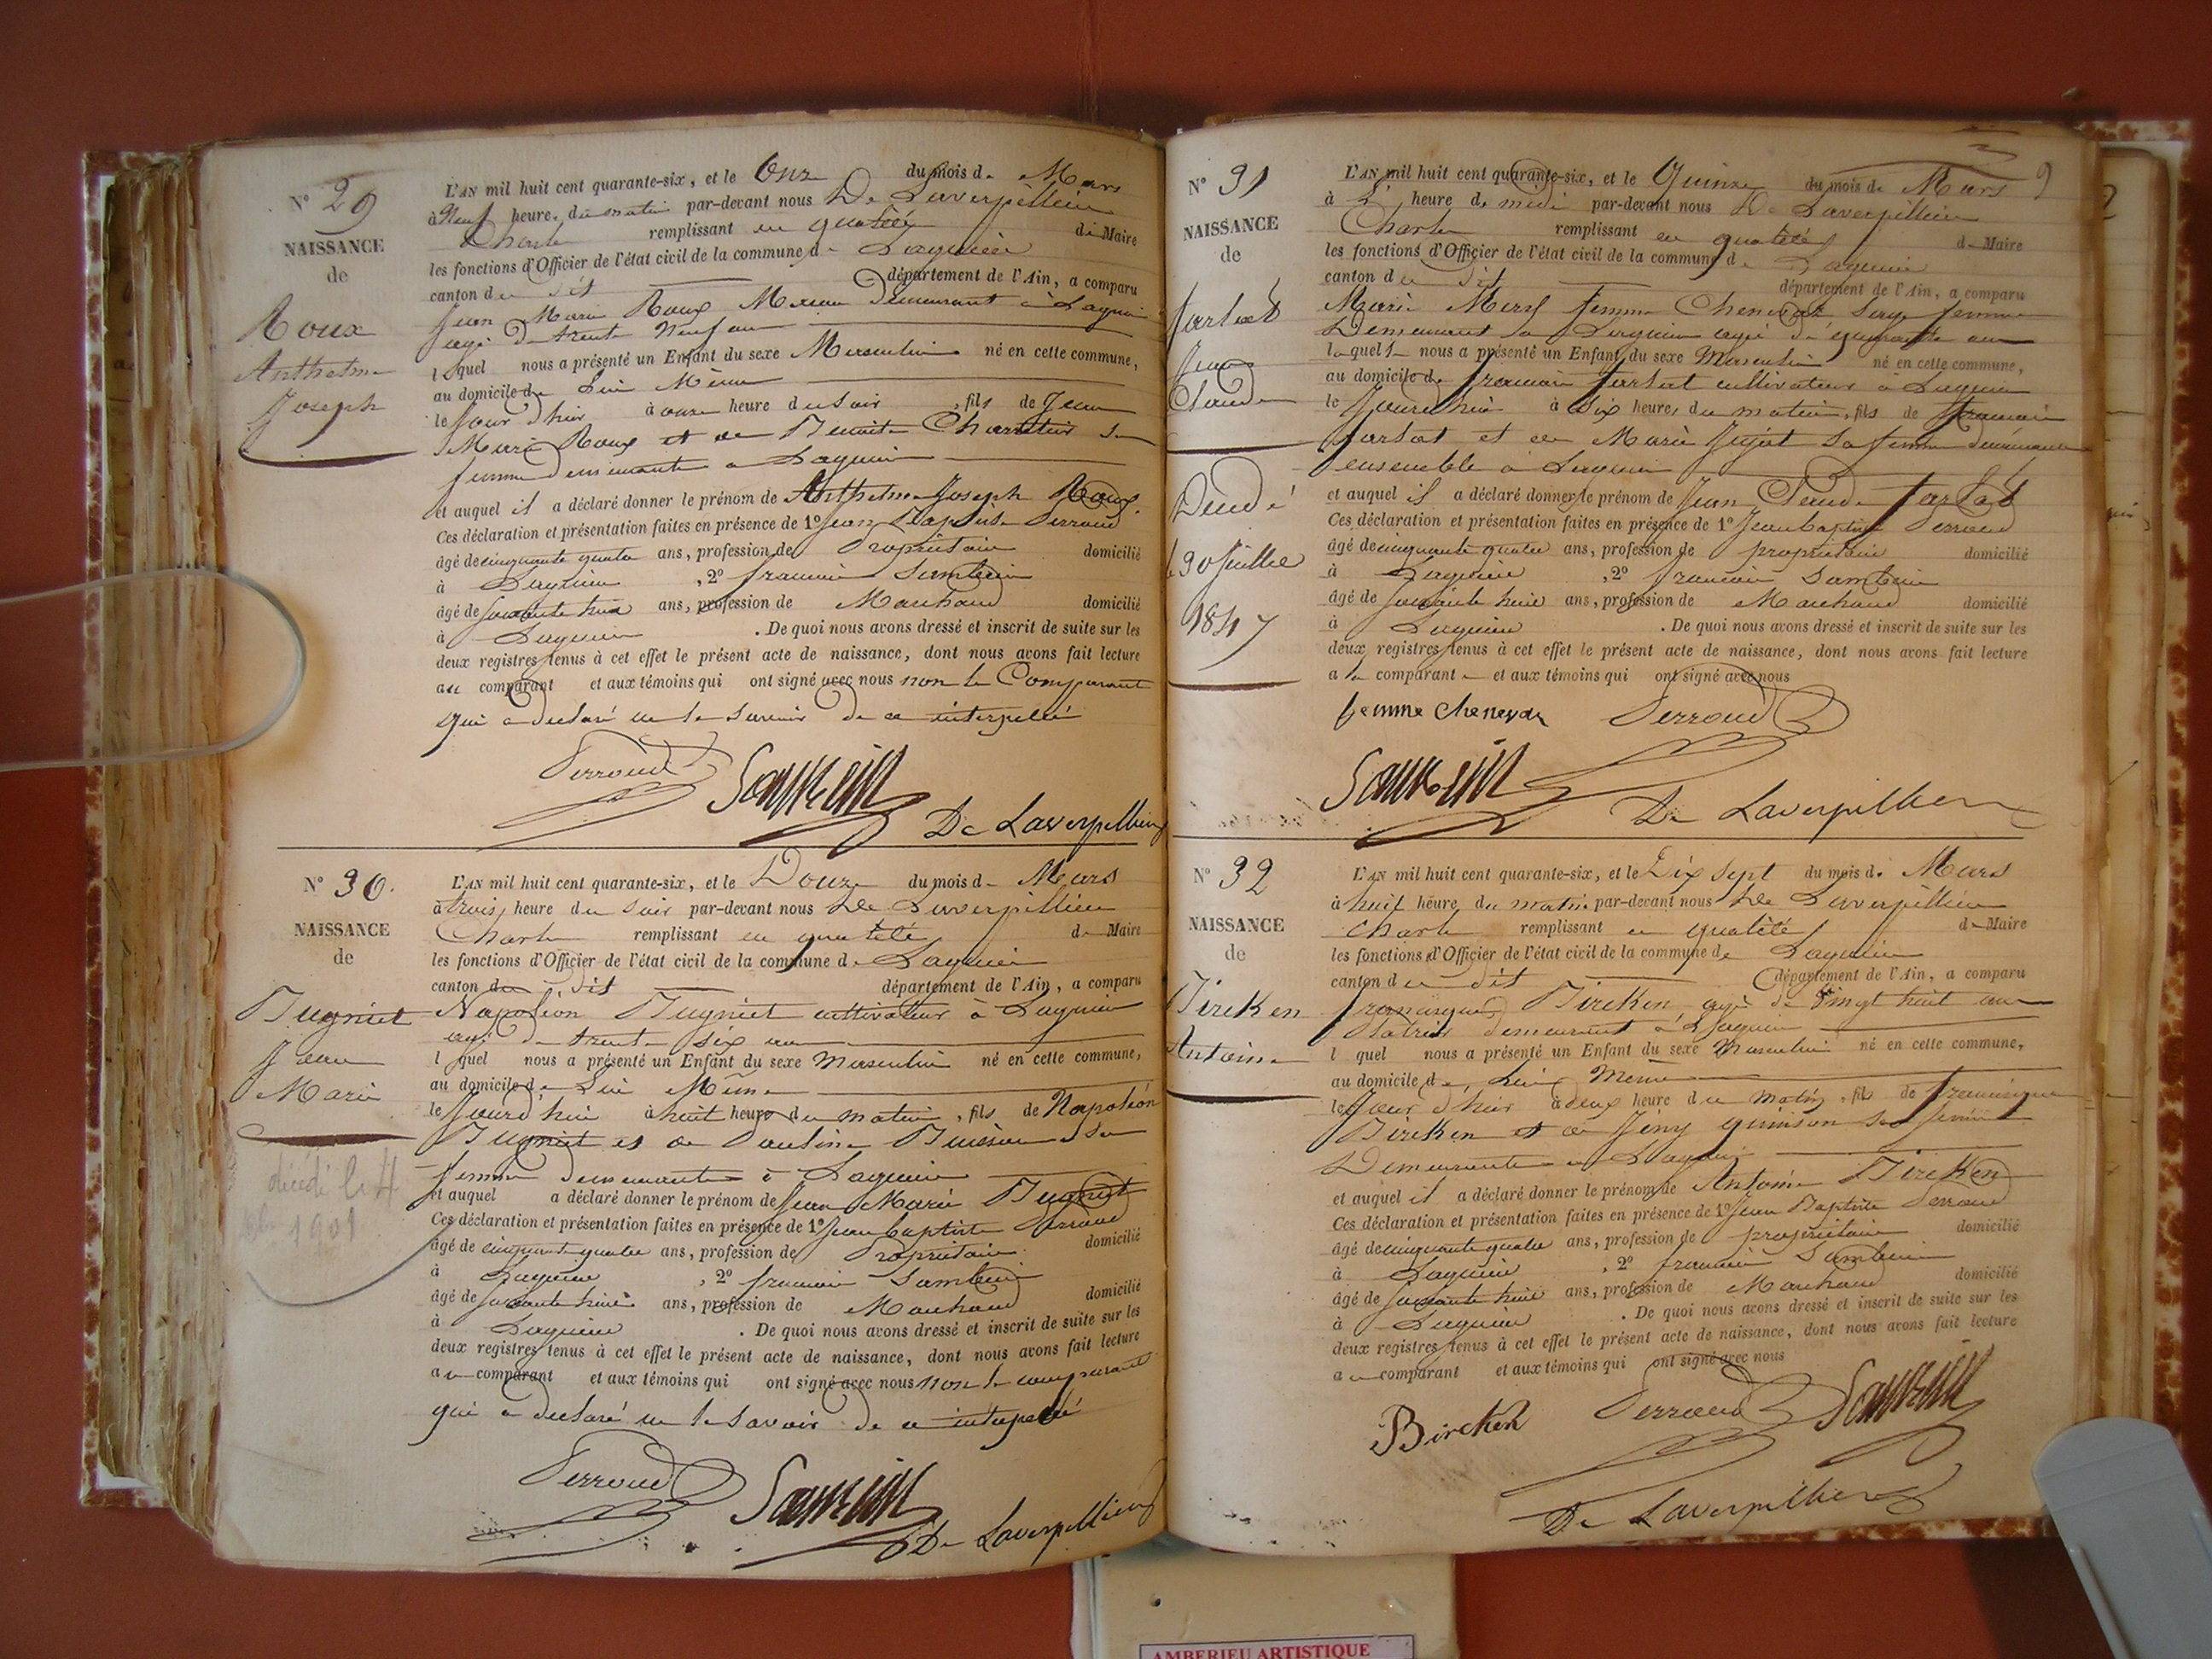 N° 29
NAISSANCE
de
Roux
Anthelme
Joseph
L'AN mil huit cent quarante-six, et le Onze du mois de Mars
à Neuf heures du matin par-devant nous De Laverpillière
Charles remplissant en qualité de Maire
les fonctions d'Officier de l'état civil de la commune de Lagnieu
canton du dit département de l'Ain, a comparu
Jean Marie Roux demeurant à Lagnieu
agé de trente Neuf ans
lequel nous a présenté un Enfant du sexe Masculin né en cette commune,
au domicile de Lui Même
le Jour d'hier à onze heure du soir, fils de Jean
Marie Roux et de Benoite sa
femme demeurante a Lagnieu
et auquel il a déclaré donner le prénom de Anthelme Joseph Roux.
Ces déclaration et présentation faites en présence de 1° Jean Baptiste Perroud
âgé de cinquante quatre ans, profession de Propriétaire domicilié
à Lagnieu, 2° francois Sambein
âgé de soixante huit ans, profession de Marchand domicilié
à Lagnieu. De quoi nous avons dressé et inscrit de suite sur les
deux registres tenus à cet effet le présent acte de naissance, dont nous avons fait lecture
au comparant et aux témoins qui ont signé avec nous non le Comparant
qui a declaré ne le savoir de ce interpellé
Perroud
Sambein
De Laverpillière
N° 30.
NAISSANCE
de
Bugniet
Jean
Marie
décédé le 4
1901
L'AN mil huit cent quarante-six, et le Douze du mois de Mars
à trois heure du soir par-devant nous De Laverpillière
Charles remplissant en qualité de Maire
les fonctions d'Officier de l'état civil de la commune de Lagnieu
canton du dit département de l'Ain, a comparu
Napoléon Bugniet cultivateur à Lagnieu
agé de trente six ans
lequel nous a présenté un Enfant du sexe Masculin né en cette commune,
au domicile de Lui Même
le Jourd'hui à huit heure du matin, fils de Napoléon
Bugniet et de Pauline sa
femme demeurante à Lagnieu
et auquel a déclaré donner le prénom de Jean Marie Bugniet
Ces déclaration et présentation faites en présence de 1° Jean baptiste Perroud
âgé de cinquante quatre ans, profession de Propriétaire domicilié
à Lagnieu, 2° francois Sambein
âgé de soixante huit ans, profession de Marchand domicilié
à Lagnieu. De quoi nous avons dressé et inscrit de suite sur les
deux registres tenus à cet effet le présent acte de naissance, dont nous avons fait lecture
au comparant et aux témoins qui ont signé avec nous non le comparant
qui a declaré ne le savoir de ce interpellé
Perroud
Sambein
De Laverpillière
9
N° 31
NAISSANCE
de
Jean
Claude
Décédé
le 30 Juillet
1847
L'AN mil huit cent quarante-six, et le Quinze du mois de Mars
à heure de midi par-devant nous De Laverpillière
Charles remplissant en qualité de Maire
les fonctions d'Officier de l'état civil de la commune de Lagnieu
canton du dit département de l'Ain, a comparu
Marie femme Chenevas Sage femme
Demeurant à Lagnieu agée de quarante ans
laquelle nous a présenté un Enfant du sexe Masculin né en cette commune,
au domicile de francois cultivateur à Lagnieu
le Jourd'hui à Six heures du matin, fils de francois
et de Marie Jujat Sa femme demeurants
ensemble à Lagnieu
et auquel il a déclaré donner le prénom de Jean Claude
Ces déclaration et présentation faites en présence de 1° Jean baptiste Perroud
âgé de cinquante quatre ans, profession de propriétaire domicilié
à Lagnieu, 2° francois Sambein
âgé de soixante huit ans, profession de Marchand domicilié
à Lagnieu. De quoi nous avons dressé et inscrit de suite sur les
deux registres tenus à cet effet le présent acte de naissance, dont nous avons fait lecture
a la comparante et aux témoins qui ont signé avec nous
femme chenevas
Perroud
Sambein
De Laverpilliere
N° 32
NAISSANCE
de
Bircken
Antoine
L'AN mil huit cent quarante-six, et le Dix Sept du mois de Mars
à huit heure du matin par-devant nous De Laverpillière
Charles remplissant en qualité de Maire
les fonctions d'Officier de l'état civil de la commune de Lagnieu
canton du dit département de l'Ain, a comparu
Bircken, agé de Vingt huit ans
demeurant à Lagnieu
lequel nous a présenté un Enfant du sexe Masculin né en cette commune,
au domicile de Lui Même
le Jour d'hier à deux heure du matin, fils de
Bircken et de Jény sa femme
Demeurante a Lagnieu
et auquel il a déclaré donner le prénom de Antoine Bircken
Ces déclaration et présentation faites en présence de 1° Jean Baptiste Perroud
âgé de cinquante quatre ans, profession de propriétaire domicilié
à Lagnieu, 2° francois Sambein
âgé de soixante huit ans, profession de Marchand domicilié
à Lagnieu. De quoi nous avons dressé et inscrit de suite sur les
deux registres tenus à cet effet le présent acte de naissance, dont nous avons fait lecture
au comparant et aux témoins qui ont signé avec nous
Bircken
Perroud
Sambein
De Laverpilliere
AMBERIEU ARTISTIQUE